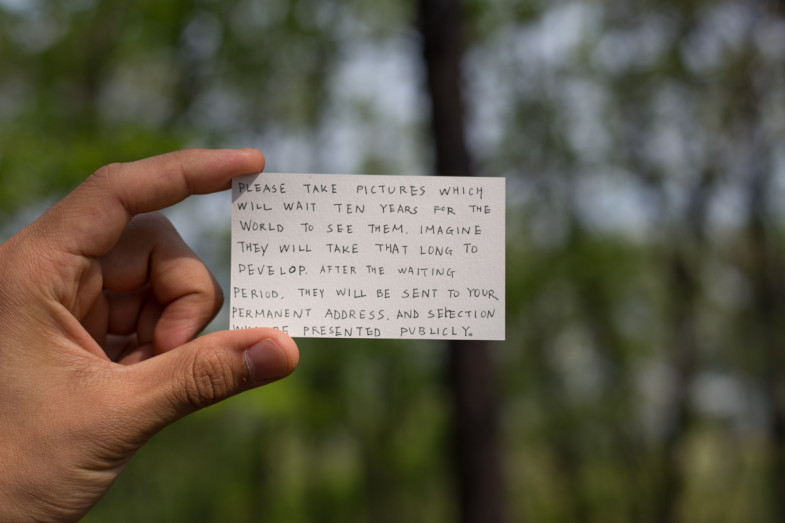 PLEASE TAKE PICTURES WHICH
WILL WAIT TEN YEARS FOR THE
WORLD TO SEE THEM. IMAGINE
THEY WILL TAKE THAT LONG TO
DEVELOP. AFTER THE WAITING
PERIOD, THEY WILL BE SENT TO YOUR
PERMANENT ADDRESS. AND SELECTION
PRESENTED PUBLICLY.